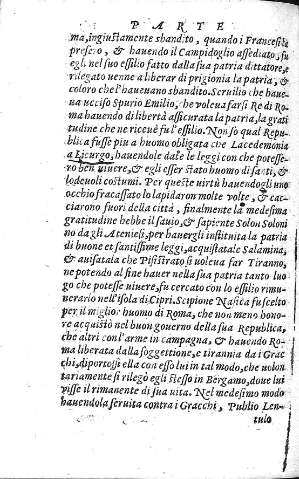 PARTE
ma, ingiustamente sbandito, quando i Francesi la
presero, & hauendo il Campidoglio assediato, fu
egli nel suo essilio fatto dalla sua patria dittatore, e
rilegato uenne a liberar di prigionia la patria, &
coloro che l'haueuano sbandito. Seruilio che haue-
ua ucciso Spurio Emilio, che voleua farsi Re di Ro-
ma hauendo di libertà assicurata la patria, la grati
tudine che ne riceuè fu l'essilio. Non so qual Repu-
blica fusse piu a huomo obligata che Lacedemonia
a Licurgo, hauendole date le leggi con che potesse-
ro ben uiuere, & egli esser stato huomo di santi, &
lodeuoli costumi. Per queste uirtù hauendogli uno
occhio fracassato lo lapidaron molte volte, & cac-
ciarono fuori della città, finalmente la medesima
gratitudine hebbe il sauio, & sapiente Solon Soloni
no da gli Ateniesi, per hauergli instituita la patria
di buone et santissime leggi, acquistatale Salamina,
& auisatala che Pisistrato si uoleua far Tiranno,
ne potendo al fine hauer nella sua patria tanto luo
go che potesse uiuere, fu cercato con lo essilio rimu-
nerarlo nell'isola di Cipri. Scipione Nasica fu scelto
per il miglior huomo di Roma, che non meno hono-
re acquistò nel buon gouerno della sua Republica,
che altri con l'arme in campagna, & hauendo Ro-
ma liberata dalla soggettione, e tirannia da i Grac
chi, diportossi ella con esso lui in tal modo, che uolon
tariamente si rilegò egli stesso in Bergamo, doue lui
visse il rimanente di sua uita. Nel medesimo modo
hauendola seruita contra i Gracchi, Publio Len-
tulo